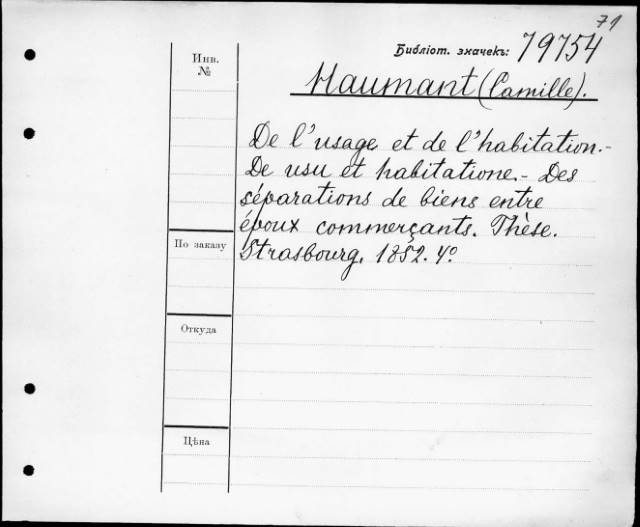 71
Библіот. значекъ: 79754
Инв.
№
Haumant (Camille).
De l'usage et de l'habitation.-
De usu et habitatione.- Des
séparations de biens entre
époux commerçants. Thèse.
Strasbourg. 1852. 4º
По заказу
Откуда
Цѣна